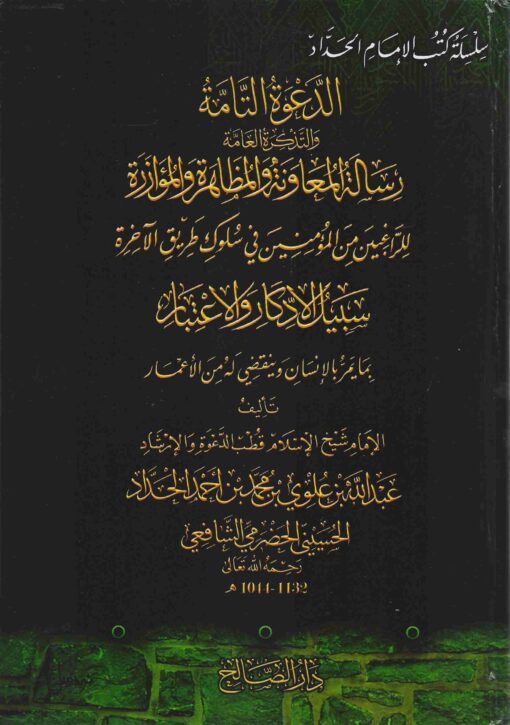 سِلْسِلَةُ كُتُبِ الإِمَامِ الحَدَّادِ
الدَّعْوَةُ التَّامَّةُ
وَالتَّذْكِرَةُ العَامَّةُ
رِسَالَةُ المُعَاوَنَةِ وَالمُظَاهَرَةِ وَالمُؤَازَرَةِ
لِلرَّاغِبِينَ مِنَ المُؤْمِنِينَ فِي سُلُوكِ طَرِيقِ الآخِرَةِ
سَبِيلُ الادِّكَارِ وَالاعْتِبَارِ
بِمَا يَمُرُّ بِالإِنْسَانِ وَيَنْقَضِي لَهُ مِنَ الأَعْمَارِ
تَأْلِيفُ
الإِمَامِ شَيْخِ الإِسْلَامِ قُطْبِ الدَّعْوَةِ وَالإِرْشَادِ
عَبْدِ اللهِ بْنِ عَلَوِي بْنِ مُحَمَّدِ بْنِ أَحْمَدَ الحَدَّادِ
الحُسَيْنِي الحَضْرَمِي الشَّافِعِي
رَحِمَهُ اللهُ تَعَالَى
1044-1132 هـ
دَارُ الصَّالِحِ